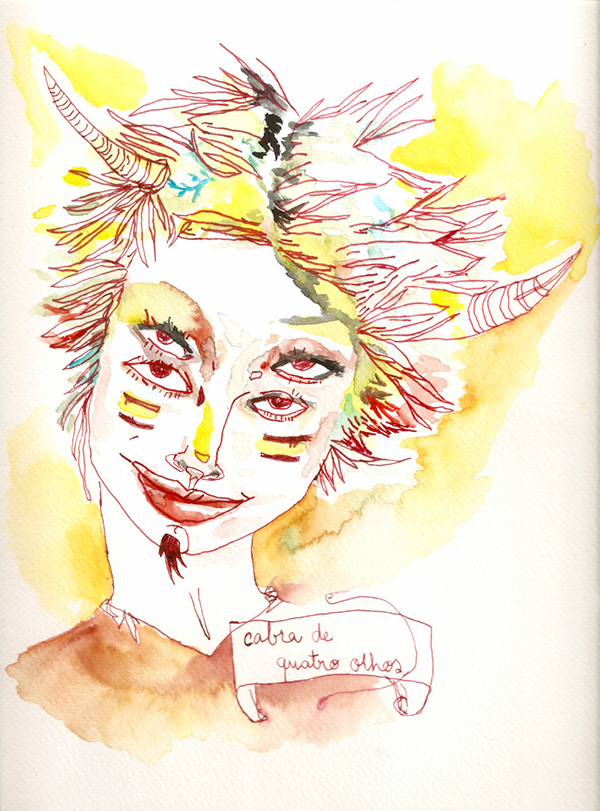 cabra de
quatro olhos